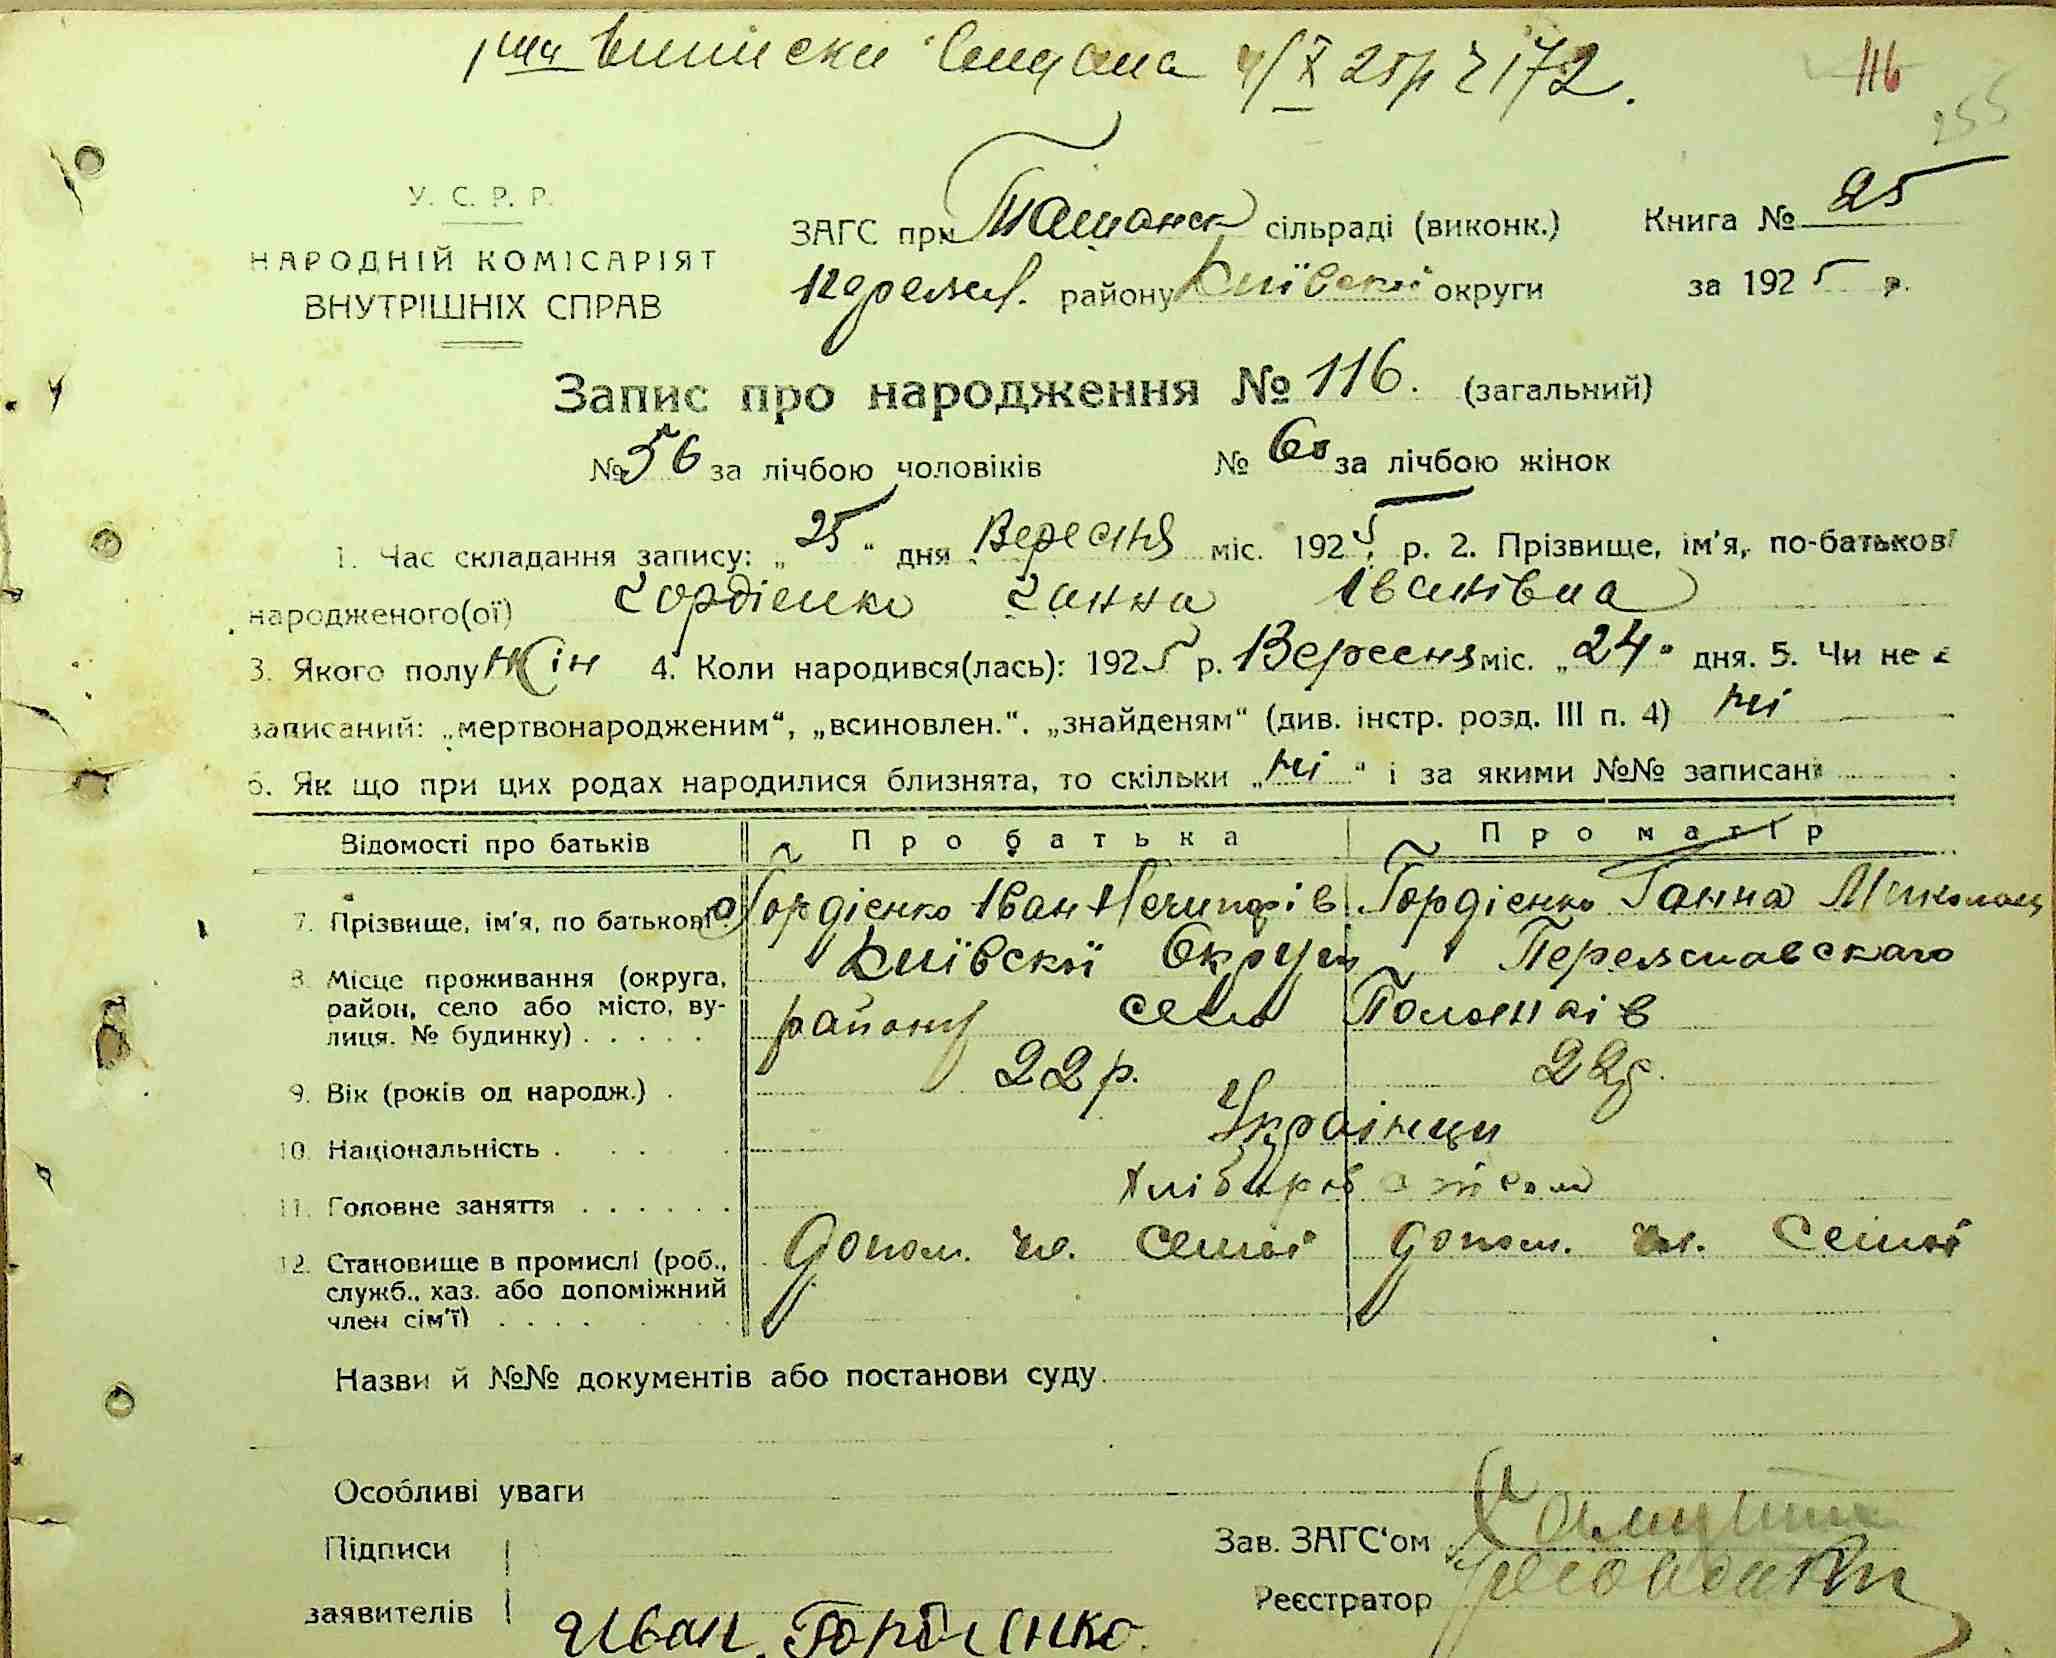 виписка видана 4/X 25р 172.
116
255
У. С. Р. Р.
НАРОДНІЙ КОМІСАРІЯТ
ВНУТРІШНІХ СПРАВ
ЗАГС при Ташанск сільраді (виконк.)
Переясл. району Київскої округи
Книга № 25
за 1925 р.
Запис про народження № 116. (загальний)
№ 56 за лічбою чоловіків № 60 за лічбою жінок
1. Час складання запису: „25“ дня Вересня міс. 1925 р. 2. Прізвище, ім'я, по-батькові
народженого(ої) Гордієнко Ганна Іванівна
3. Якого полу жін 4. Коли народився(лась): 1925 р. Вересня міс. „24“ дня. 5. Чи не є
записаний: „мертвонародженим“, „всиновлен.“. „знайденям“ (див. інстр. розд. III п. 4) ні
6. Як що при цих родах народилися близнята, то скільки „ні“ і за якими №№ записані
Відомості про батьків Про батька Про матір
7. Прізвище, ім'я, по батькові Гордієнко Іван Нечипорів Гордієнко Ганна Миколаєв
8. Місце проживання (округа, район, село або місто, вулиця. № будинку) Київскої Округи Переяславскаго
району село
9. Вік (років од народж.) 22 р. 22 р.
10. Національність Українци
11. Головне заняття
12. Становище в промислі (роб., служб., хаз. або допоміжний член сім'ї) допом. чл. семьї допом. чл. семьї
Назви й №№ документів або постанови суду
Особливі уваги
Підписи
заявителів Иван Гордіенко.
Зав. ЗАГС'ом
Реєстратор